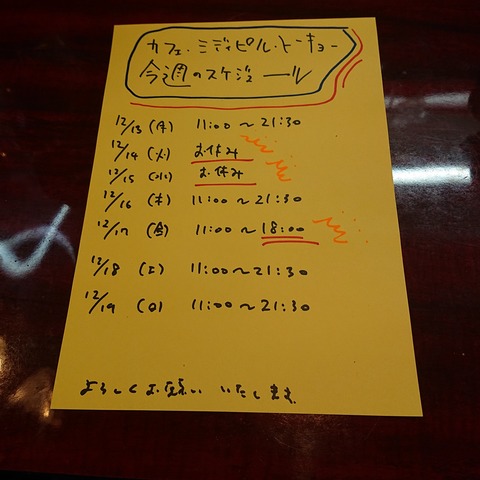 カフェ・ミディピル・トーキョー
今週のスケジュール
12/13 (月) 11:00〜21:30
12/14 (火) お休み
12/15 (水) お休み
12/16 (木) 11:00〜21:30
12/17 (金) 11:00〜18:00
12/18 (土) 11:00〜21:30
12/19 (日) 11:00〜21:30
よろしくお願いいたします。